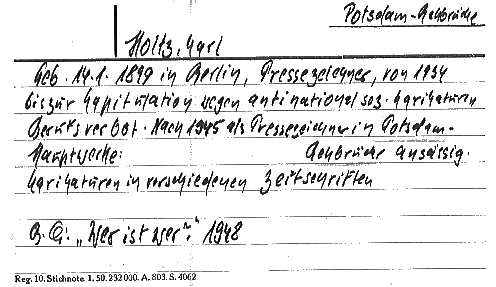 Potsdam-Rehbrücke
Holtz, Karl
Geb. 14.1. 1899 in Berlin, Pressezeichner, von 1934
bis zur Kapitulation wegen antinational soz. Karikaturen
Berufsverbot. Nach 1945 als Pressezeichner in Potsdam-
Hauptwerke: Rehbrücke ansässig.
Karikaturen in verschiedenen Zeitschriften
B. Q: „Wer ist wer?" 1948
Reg. 10. Stichnote 1. 50. 232 000. A. 803. S. 4062